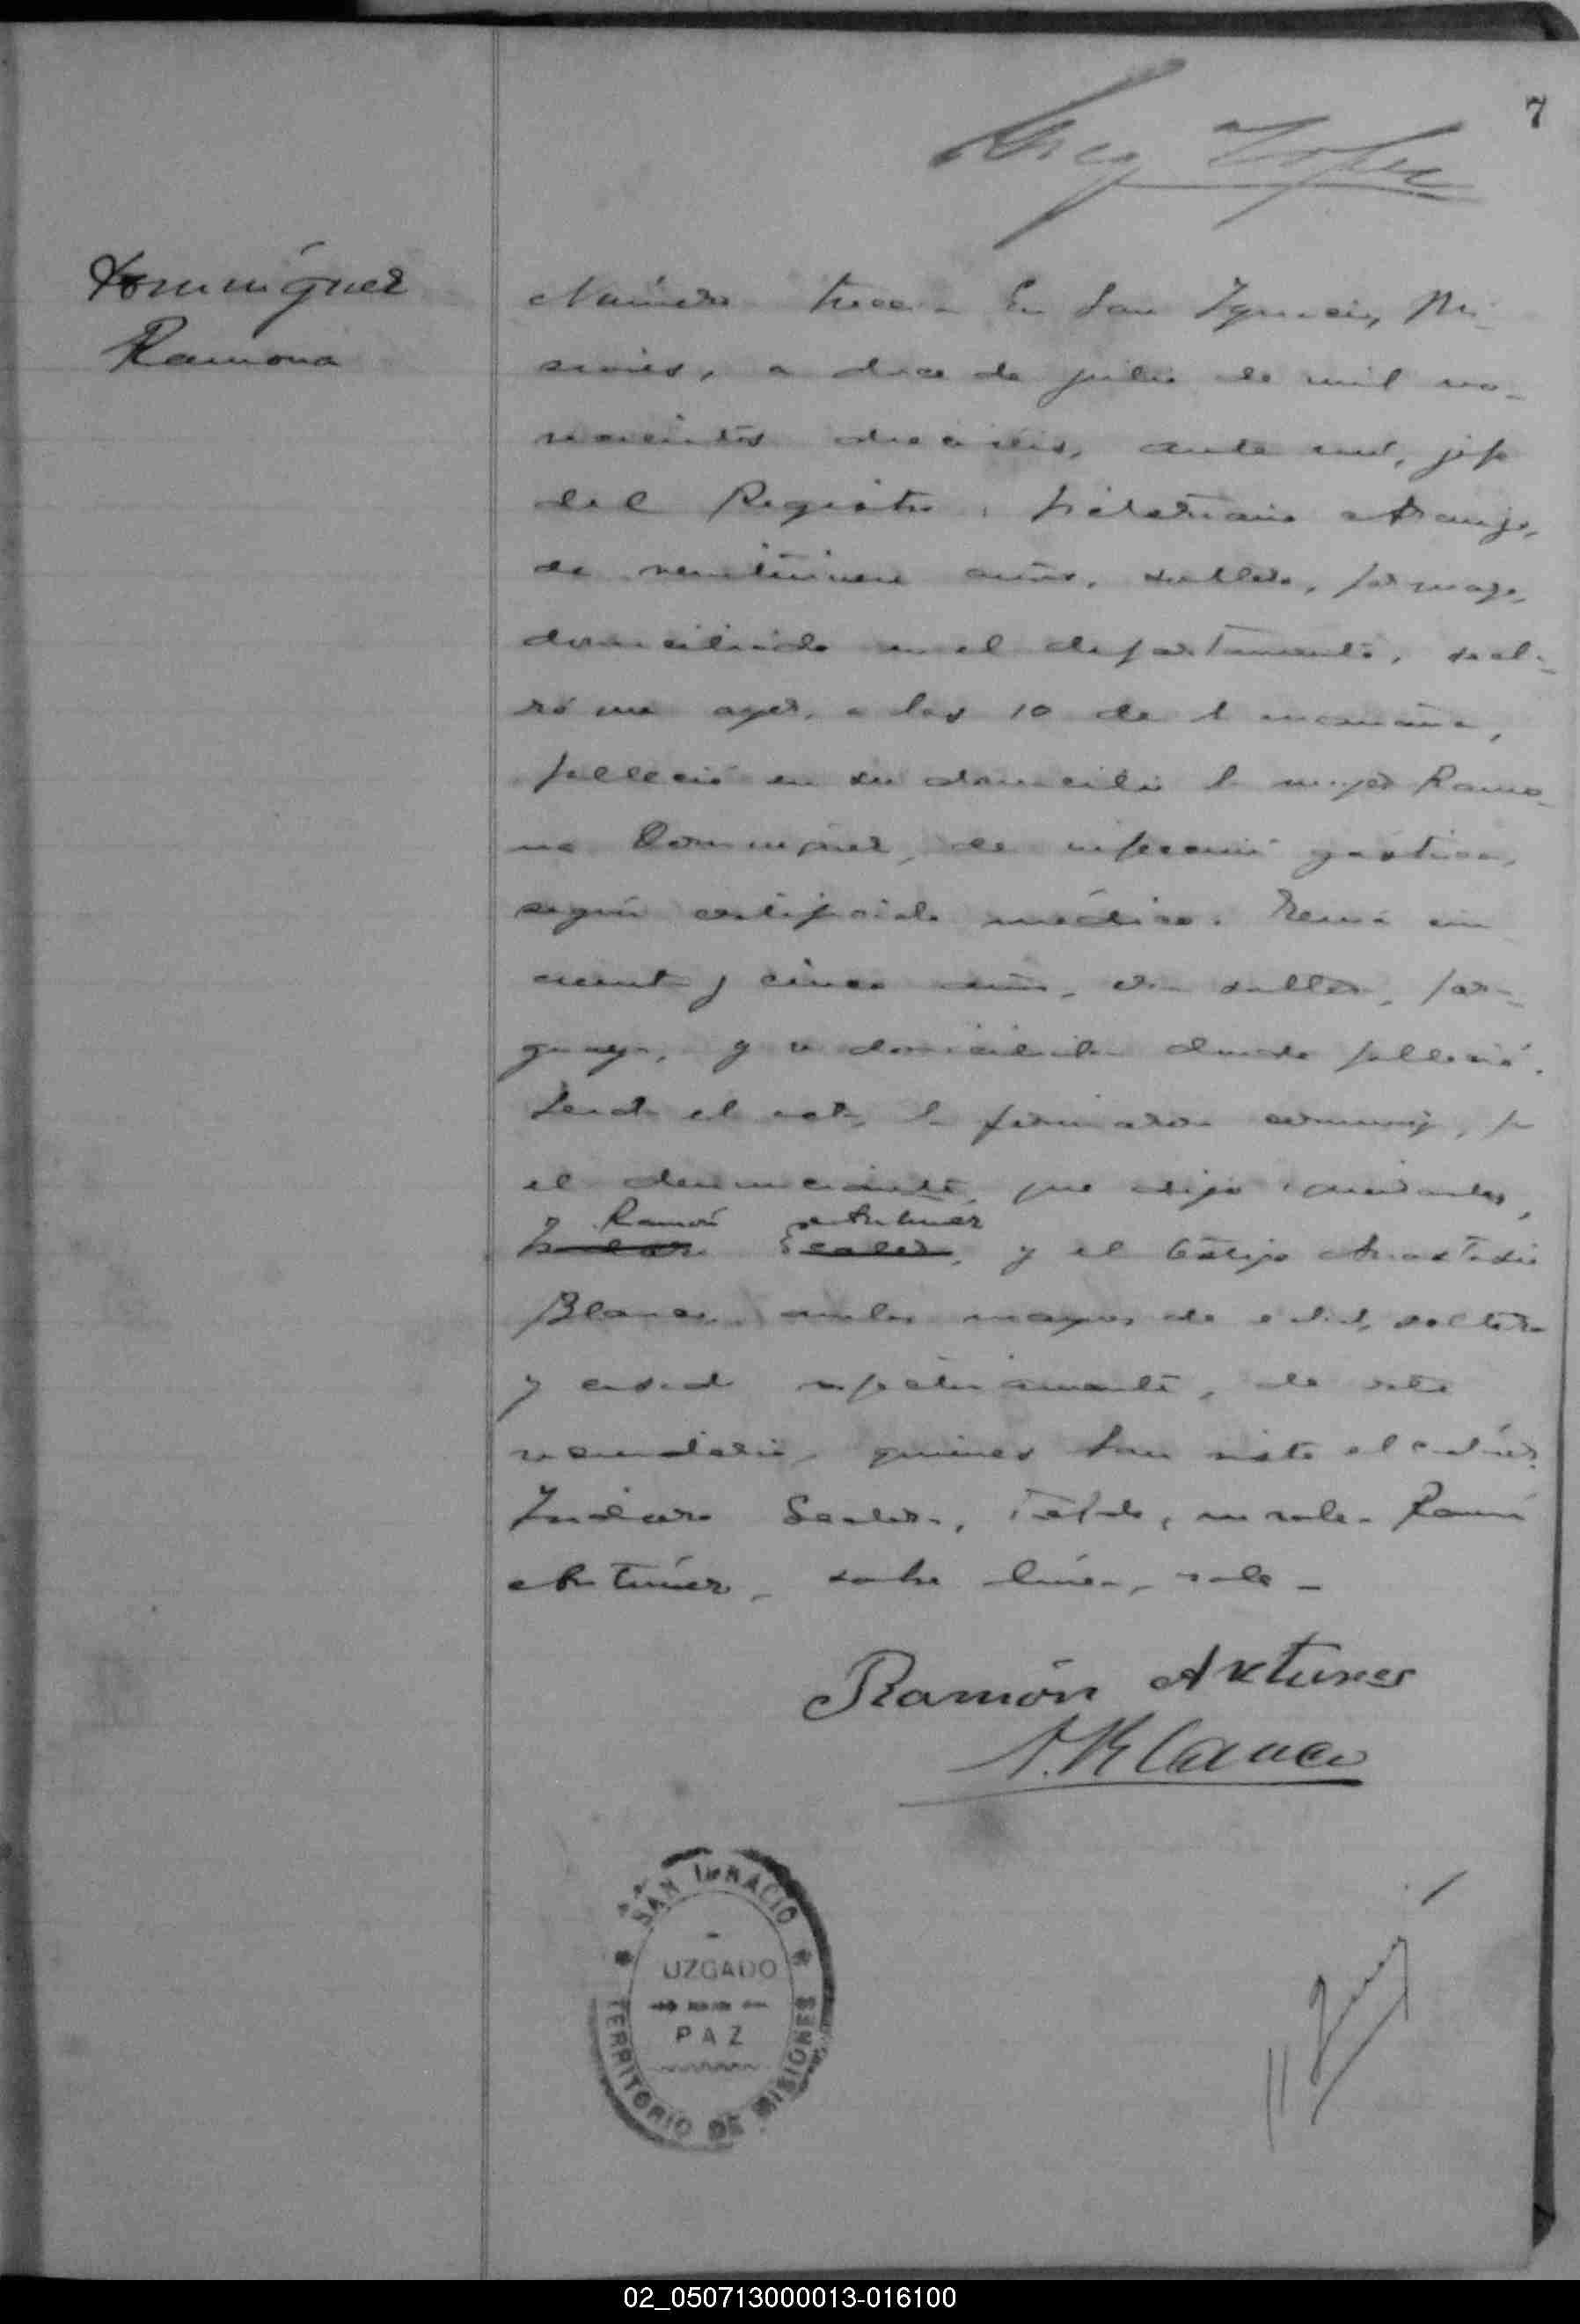 7
Domínguez
Ramona
Número trece - En San Ignacio, Mi-
siones, a doce de julio de mil no-
vecientos dieciséis, ante mí, jefe
del Registro, Araujo,
de veintinueve años, soltero,
domiciliado en el departamento, decla-
ró que ayer, a las 10 de la mañana,
falleció en su domicilio la mujer Ramo-
na Domínguez, de infección gástrica,
según certificado médico. Tenía cin
cuenta y cinco años, era soltera, para-
guaya, y domiciliada donde falleció.
Leída el acta, la firmaron conmigo, por
el denunciante, que dijo ignorarlo,
Ramón Antúnez
y el testigo Anastasio
Blanco, ambos mayores de edad, soltero
y casado respectivamente, de este
vecindario, quienes han visto el cadáver.
, no vale. Ramón
Antúnez, sobre línea, vale -
Ramón Antunes
A. Blanco
SAN IGNACIO
UZGADO
PAZ
TERRITORIO DE MISIONES
02_050713000013-016100